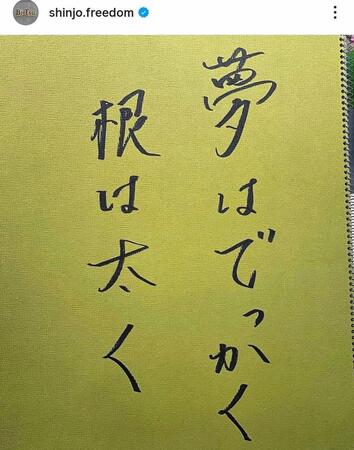 shinjo.freedom
夢はでっかく
根は太く